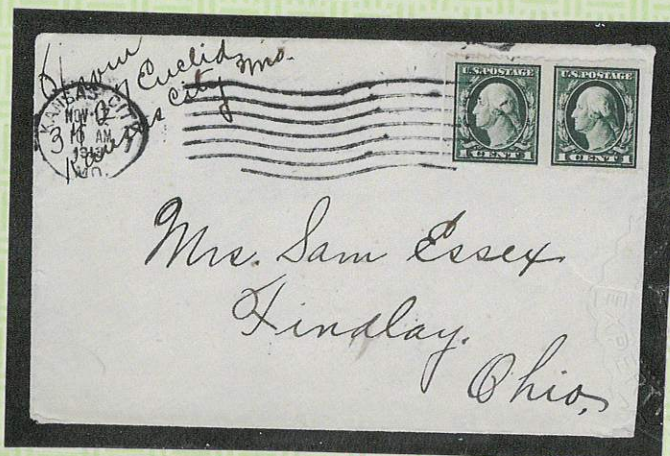 From
Euclid
Kansas City Mo.
KANSAS CITY
NOV
AM
MO.
U.S. POSTAGE
1 CENT 1
U.S. POSTAGE
1 CENT 1
Mrs. Sam Essex
Findlay.
Ohio,